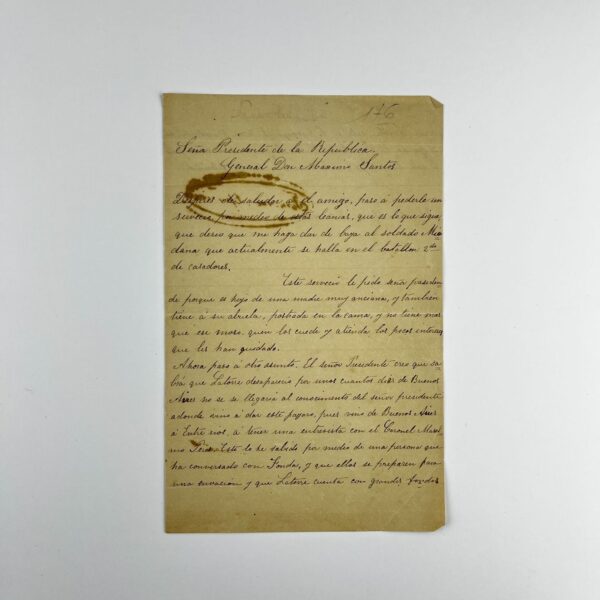 176
Señor Presidente de la Republica.
General Don Maximo Santos
Despues de saludar a el amigo, paso a pederle un
servicio por medio de estas lineas, que es lo que sigue
que deseo que me haga dar de baja al soldado
dana que actualmente se halla en el batallon 2do
de casadores.
Este servicio le pido señor presiden
de porque es hijo de una madre muy anciana, y tambien
tiene á su abuela, postrada en la cama, y no tiene mas
que ese moso. quien los cuede y atienda los pocos intereses
que les han quedado.
Ahora paso á otro asunto. El señor Presidente creo que sa
brá que Latorre desaparecio por unos cuantos dias de Buenos
Aires no se se llegaria al conocimiento del señor presidente
adonde vino á dar este pajaro, pues vino de Buenos Aires
á Entre rios, á tener una entrevista con el Coronel Maxi
mo Peres. Esto lo he sabido por medio de una persona que
ha conversado con Fonda, y que ellos se preparen para
una envacion y que Latorre cuenta con grandes fondos